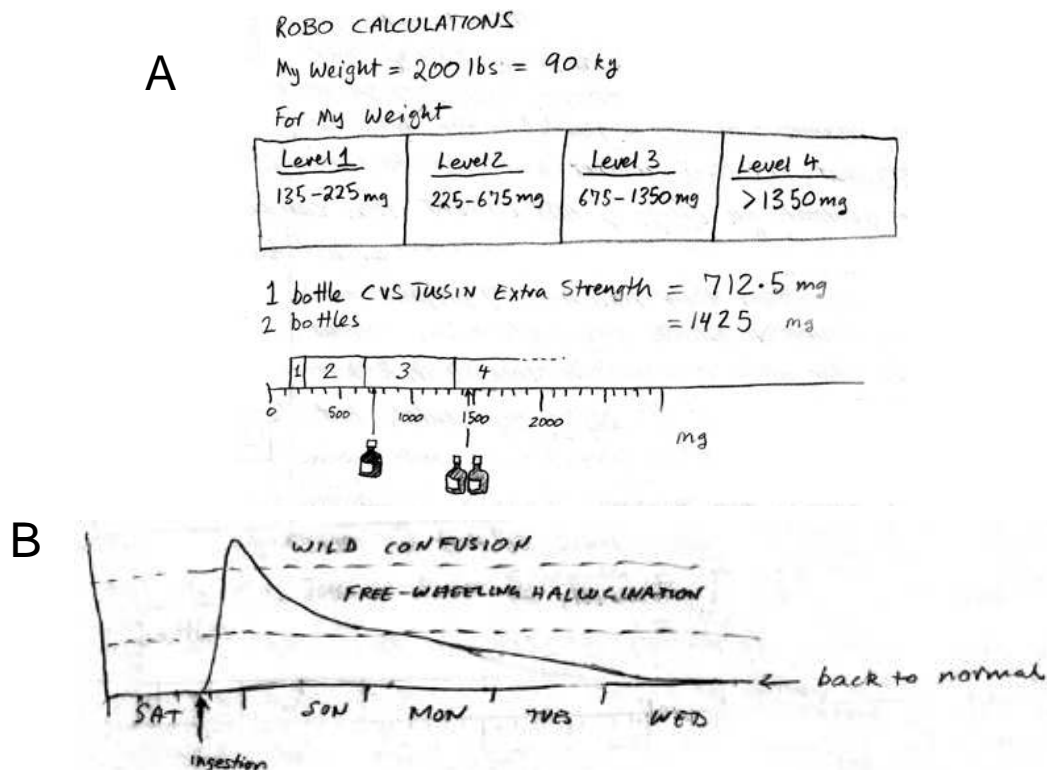 A
ROBO CALCULATIONS
My Weight = 200 lbs = 90 kg
For My Weight
Level 1 Level 2 Level 3 Level 4
135-225 mg 225-675 mg 675-1350 mg >1350 mg
1 bottle CVS TUSSIN Extra Strength = 712.5 mg
2 bottles = 1425 mg
1 2 3 4
0 500 1000 1500 2000
mg
B
WILD CONFUSION
FREE-WHEELING HALLUCINATION
back to normal
SAT SUN MON TUES WED
ingestion